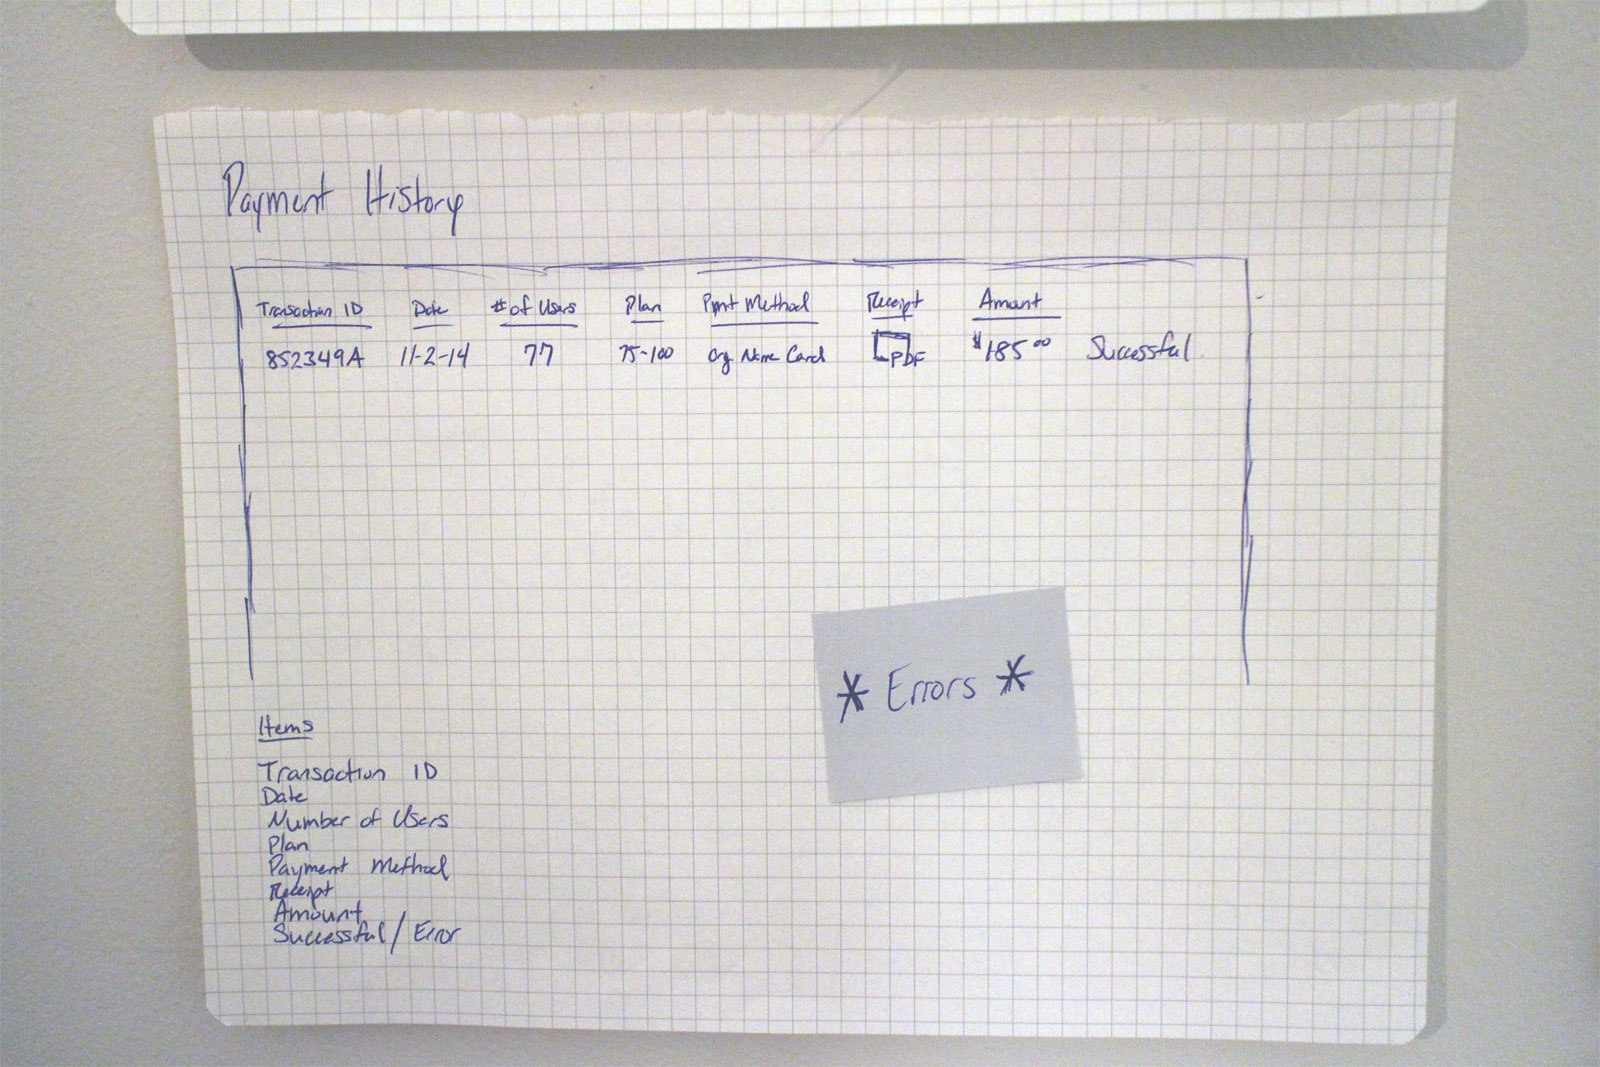 Payment History
Transaction ID Date # of Users Plan Pymt Method Receipt Amount
852349A 11-2-14 77 75-100 Org Name Card PDF $185.00 Successful
* Errors *
Items
Transaction ID
Date
Number of Users
Plan
Payment Method
Receipt
Amount
Successful / Error